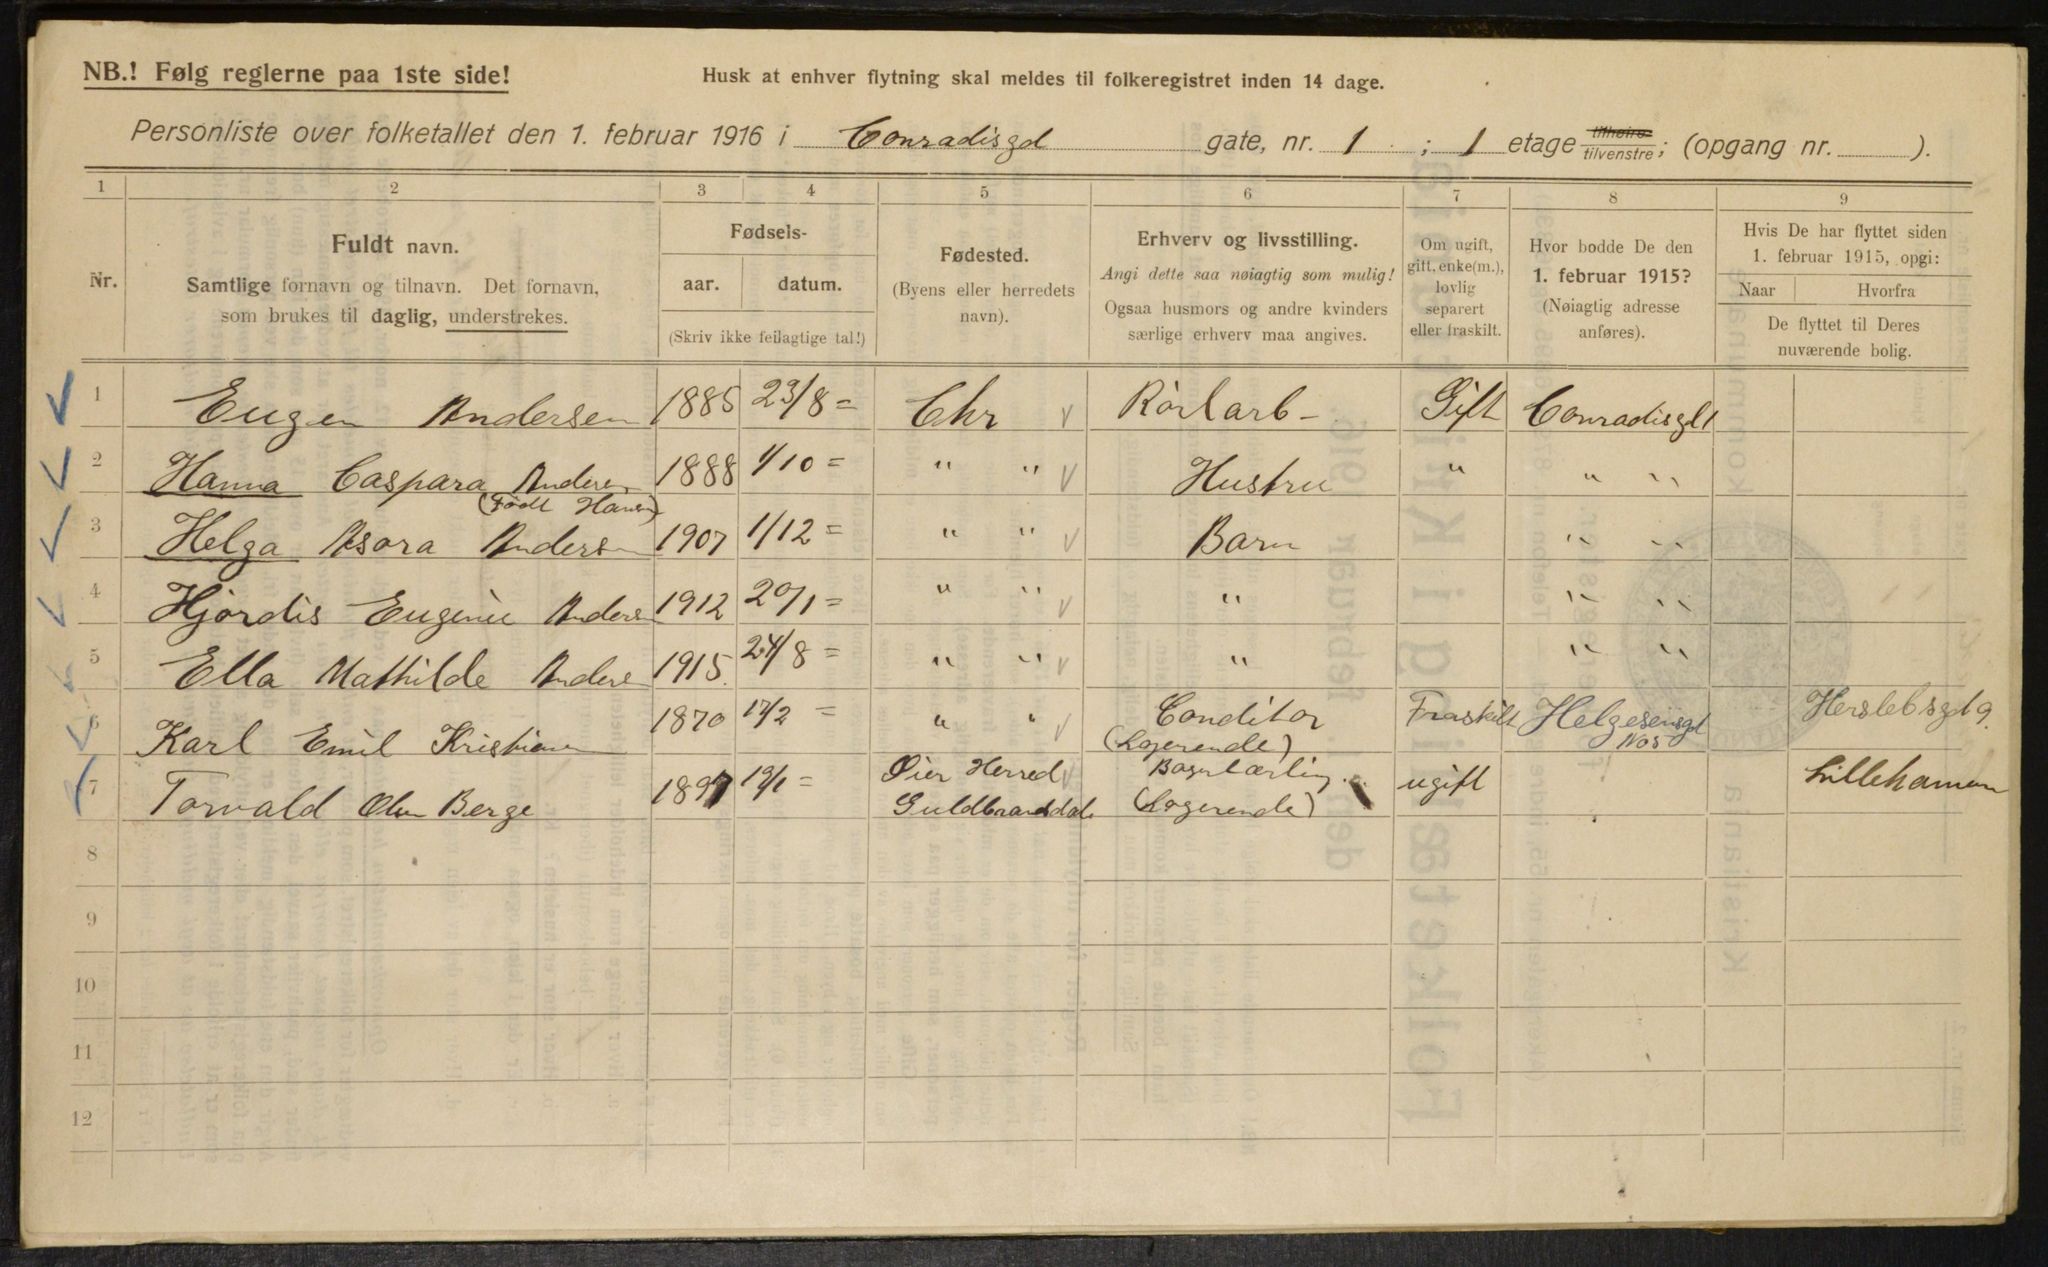 NB.! Følg reglerne paa 1ste side!
Husk at enhver flytning skal meldes til folkeregistret inden 14 dage.
Personliste over folketallet den 1. februar 1916 i Conradisgd gate, nr. 1 ; 1 etage tilhøire tilvenstre; (opgang nr. ).
1 2 3 4 5 6 7 8 9
Nr.
Fuldt navn.
Samtlige fornavn og tilnavn. Det fornavn,
som brukes til daglig, understrekes.
Fødsels-
aar. datum.
(Skriv ikke feilagtige tal!)
Fødested.
(Byens eller herredets
navn).
Erhverv og livsstilling.
Angi dette saa nøiagtig som mulig!
Ogsaa husmors og andre kvinders
særlige erhverv maa angives.
Om ugift,
gift, enke(m.),
lovlig
separert
eller fraskilt.
Hvor bodde De den
1. februar 1915?
(Nøiagtig adresse
anføres).
Hvis De har flyttet siden
1. februar 1915, opgi:
Naar Hvorfra
De flyttet til Deres
nuværende bolig.
1 Eugen Andersen 1885 23/8 = Chr Rörlarb - Gift Conradisgd 1
2 Hanna Caspara Andersen 1888 1/10 = " " Hustru " " "
(Födt Hansen)
3 Helga Asora Andersen 1907 1/12 = " " Barn " "
4 Hjordis Eugenie Anders 1912 20/1 = " " " " "
5 Ella Mathilde Anderse 1915. 24/8 = " " " " "
6 Karl Emil Kristiansen 1870 17/2 = " " Conditor Fraskilt Helgesensgd Herslebsgd 9.
(Logerende) No 5
7 Torvald Olsen Berge 1897 19/1 = Öier Herred Bagerlærling ugift Lillehamen
Guldbrandsdal (Logerende)
8
9
10
11
12